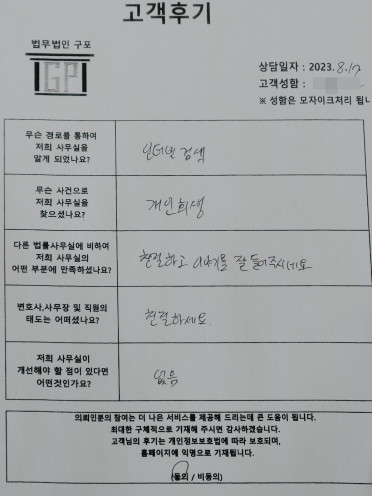 고객후기
법무법인 구포
GP
상담일자 : 2023. 8.17
고객성함 :
※ 성함은 모자이크처리 됩니
무슨 경로를 통하여
저희 사무실을
알게 되었나요?
인터넷 검색
무슨 사건으로
저희 사무실을
찾으셨나요?
개인회생
다른 법률사무실에 비하여
저희 사무실의
어떤 부분에 만족하셨나요?
친절하고 이야기를 잘 들어주시네요
변호사,사무장 및 직원의
태도는 어떠셨나요?
친절하세요
저희 사무실이
개선해야 할 점이 있다면
어떤것인가요?
없음
의뢰인분의 참여는 더 나은 서비스를 제공해 드리는데 큰 도움이 됩니다.
최대한 구체적으로 기재해 주시면 감사하겠습니다.
고객님의 후기는 개인정보보호법에 따라 보호되며,
홈페이지에 익명으로 기재됩니다.
(동의 / 비동의)